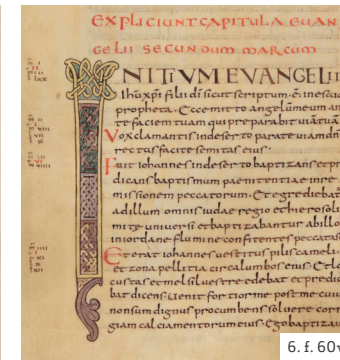 EXPLICIUNT CAPITULA EUAN
GELII SECUNDUM MARCUM
INITVM EVANGELII
Ihu xpi filii di sicut scriptum. ē. in esaia
propheta. Ecce mitto angelum meum an
te faciem tuam qui preparabit uiā tuā
Vox clamantis in deserto parate uiam dni
rectus facite semitas eius.
Fuit iohannes in deserto baptizans et pr
dicans baptismum paenitentiae in re
missionem peccatorum. Et egrediebat
ad illum omnis iudae regio et hierosoli
mite uniuersi et baptizabantur ab illo
in iordane flumine confitentes peccata s
Et erat iohannes uestitus pilis cameli
et zona pellitia circa lumbos eius. Et lo
custas et mel siluestre edebat et predic
bat dicens. Uenit fortior me post me cuiu
non sum dignus procumbens soluere cor
giam calciamentorum eius. Ego baptizau
6. f. 60v